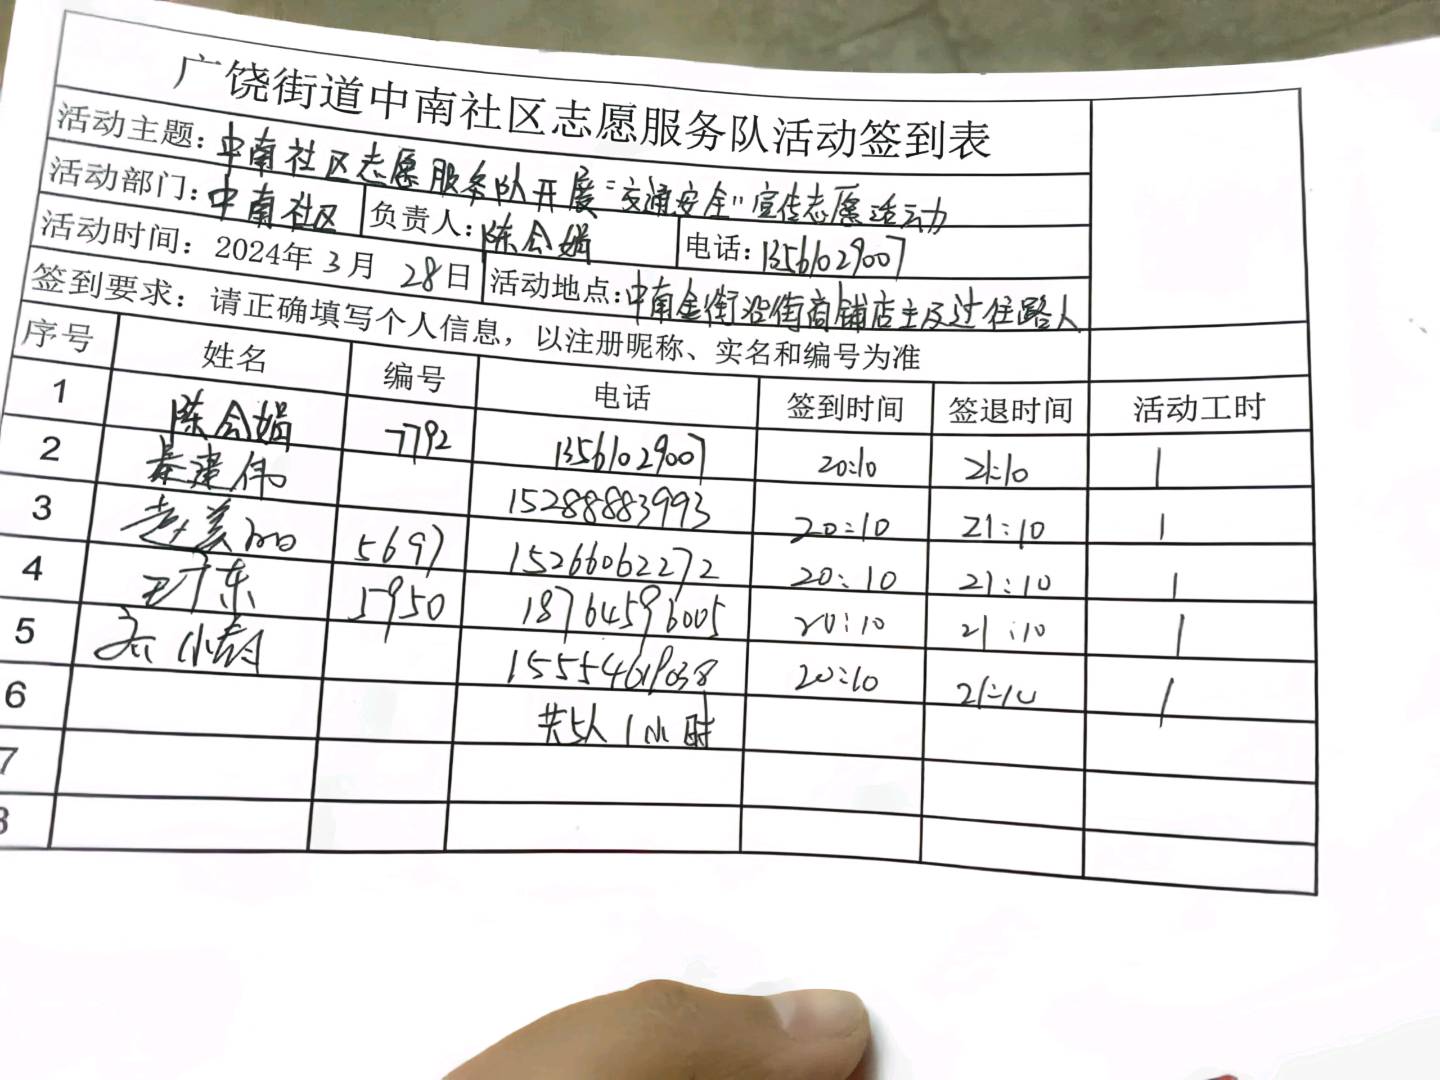 广饶街道中南社区志愿服务队活动签到表
活动主题：中南社区志愿服务队开展“交通安全”宣传志愿活动
活动部门：中南社区 负责人：陈会娟 电话：13561029007
活动时间：2024年3月28日 活动地点：中南金街沿街商铺店主及过往路人
签到要求：请正确填写个人信息，以注册昵称、实名和编号为准
序号 姓名 编号 电话 签到时间 签退时间 活动工时
1 陈会娟 7792 13561029007 20:10 21:10 1
2 秦建伟 15288883993 20:10 21:10 1
3 赵美 5697 15266062272 20:10 21:10 1
4 广东 5950 18764596005 20:10 21:10 1
5 小 15554619038 20:10 21:10 1
6 共5人1小时
7
8